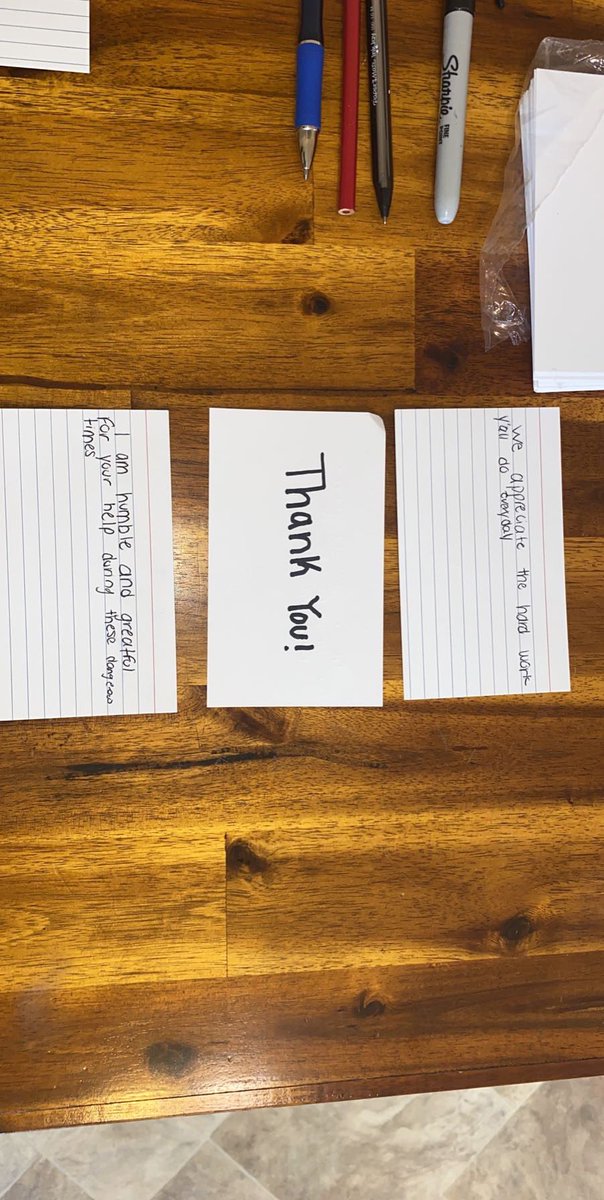 Sharpie
FINE
we appreciate the hard work
y'all do everyday
Thank You!
I am humble and greatful
for your help during these dangerous
times